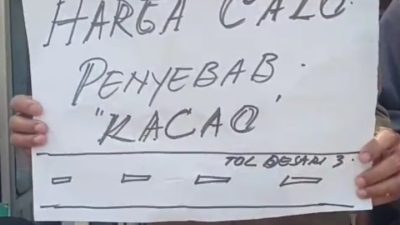 HARGA CALO
PENYEBAB:
"KACAO
TOL DESARI 3.